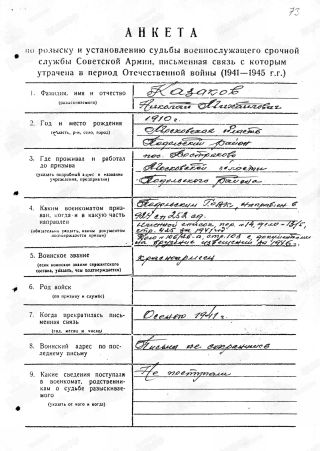 73
АНКЕТА
по розыску и установлению судьбы военнослужащего срочной
службы Советской Армии, письменная связь с которым
утрачена в период Отечественной войны (1941—1945 г.г.)
1. Фамилия, имя и отчество
(разыскиваемого)
Казаков
Николай Михайлович
2. Год и место рождения
(область, р-н, село, город)
1910 г.
Московская область
Подольский район
3. Где проживал и работал
до призыва
(указать подробный адрес и название
учреждения, предприятия)
пос. Востряково
Московской области
Подольского района
4. Каким военкоматом приз-
ван, когда и в какую часть
направлен
(обязательно указать, каким документом
подтверждается призыв)
Подольским направлен в
984 сп 258 сд
5. Воинское звание
(если воинское звание сержантского
состава, указать, чем подтверждается)
красноармеец
6. Род войск
(по призыву и службе)
7. Когда прекратилась пись-
менная связь
(год, месяц и число)
Осенью 1941 г.
8. Воинский адрес по пос-
леднему письму
Письма не сохранились
9. Какие сведения поступали
в военкомат, родственни-
кам о судьбе разыскивае-
мого
(указать от кого и когда)
Не поступали